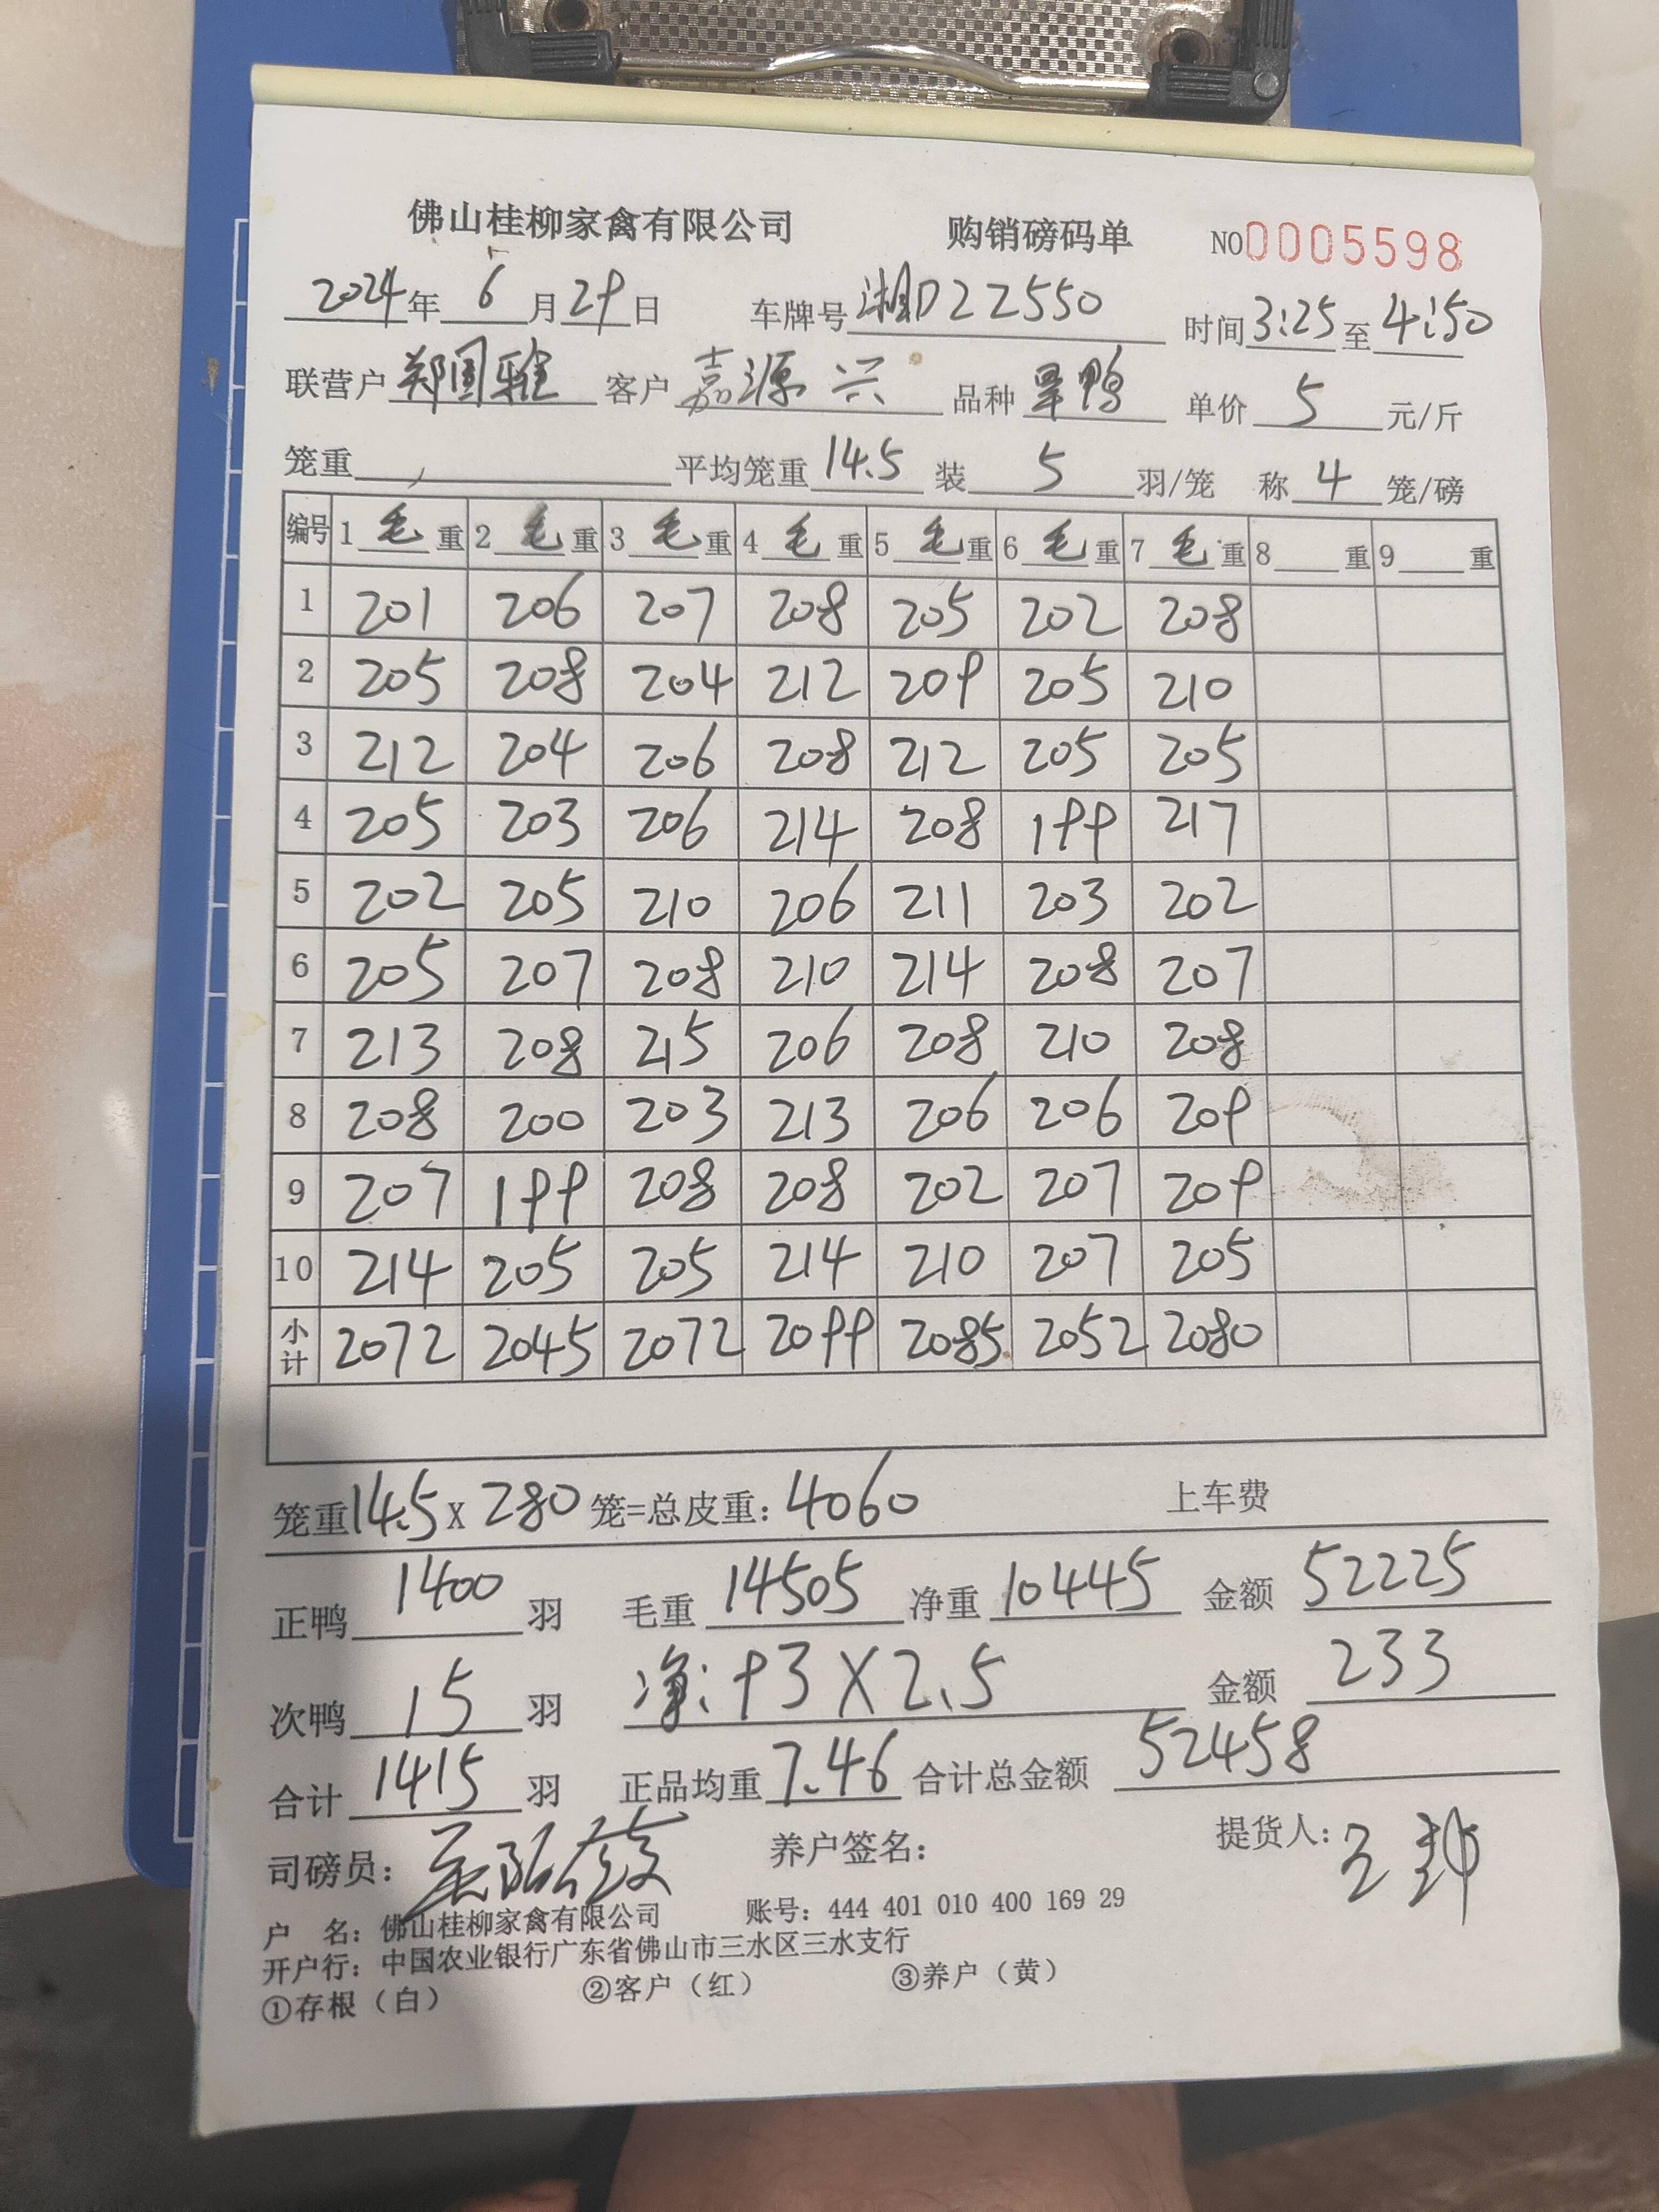 佛山桂柳家禽有限公司 购销磅码单 NO0005598
2024年 6月29日 车牌号 湘D22550 时间3:25至4:50
联营户 郑国雅 客户 嘉源兴 品种 旱鸭 单价 5 元/斤
笼重 平均笼重 14.5 装 5 羽/笼 称 4 笼/磅
编号 1 毛 重 2 毛 重 3 毛 重 4 毛 重 5 毛 重 6 毛 重 7 毛 重 8 重 9 重
1 201 206 207 208 205 202 208
2 205 208 204 212 209 205 210
3 212 204 206 208 212 205 205
4 205 203 206 214 208 199 217
5 202 205 210 206 211 203 202
6 205 207 208 210 214 208 207
7 213 208 215 206 208 210 208
8 208 200 203 213 206 206 209
9 207 199 208 208 202 207 209
10 214 205 205 214 210 207 205
小计 2072 2045 2072 2099 2085 2052 2080
笼重14.5 X 280 笼=总皮重: 4060 上车费
正鸭 1400 羽 毛重 14505 净重 10445 金额 52225
次鸭 15 羽 净: 93 X 2.5 金额 233
合计 1415 羽 正品均重 7.46 合计总金额 52458
司磅员: 养户签名: 提货人:
户 名: 佛山桂柳家禽有限公司 账号: 444 401 010 400 169 29
开户行: 中国农业银行广东省佛山市三水区三水支行
①存根(白) ②客户(红) ③养户(黄)